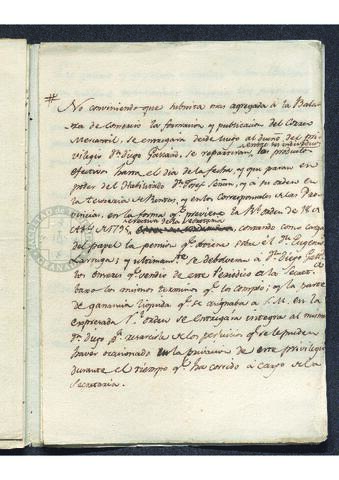 #
No conviniendo que subsista mas agregada à la Balan
za de Comercio la formacion y publicacion del Correo
Mercantil, se entregarán desde luego al dueño del pri
vilegio Dn. Diego Gallard, se repartiran entre los individuos los productos
efectivos hasta el dia de la fecha, y que paran en
poder del Habilitado Dn. Josef y à su orden en
la Tesoreria de Rentas, y en los Corresponsales de las Pro
vincias, en la forma qe. previene la Rl. orden de 18 de
de 1795, relativa à dha Secretaria contando como carga
del papel la pension qe. tiene sobre él Dn. Eugenio
Larruga; y ultimamte. se debolveran à Dn. Diego Gall.
los enseres qe. vendio de este Periodico à la Secret.a
baxo los mismos terminos qe. los compró; y la parte
de ganancia liquida qe. se asignaba à S. M. en la
expresada Rl. orden se entregará integra al mismo
Dn. Diego pa. resarcirle de los perjuicios qe. se le pueden
haver ocasionado en la privacion de este privilegio
durante el tiempo qe. ha corrido à cargo de la
Secretaria.